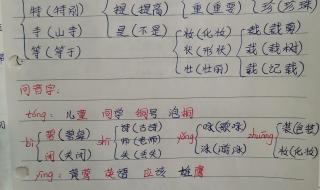 特（特别） 提（提高） 重（重要） 珍（珍珠）
寺（山寺） 是（不是） 妆（化妆） 裁（裁剪）
等（等于） 状（形状） 栽（栽树）
壮（壮丽） 载（记载）
同音字：
tóng：儿童 同学 铜号 泡桐
bì 碧（碧绿） shī 诗（古诗） yǒng 咏（歌咏） zhuāng 装（包装）
闭（关闭） 师（老师） 泳（游泳） 妆（化妆）
失（丢失）
yīng：黄莺 英语 应该 雄鹰